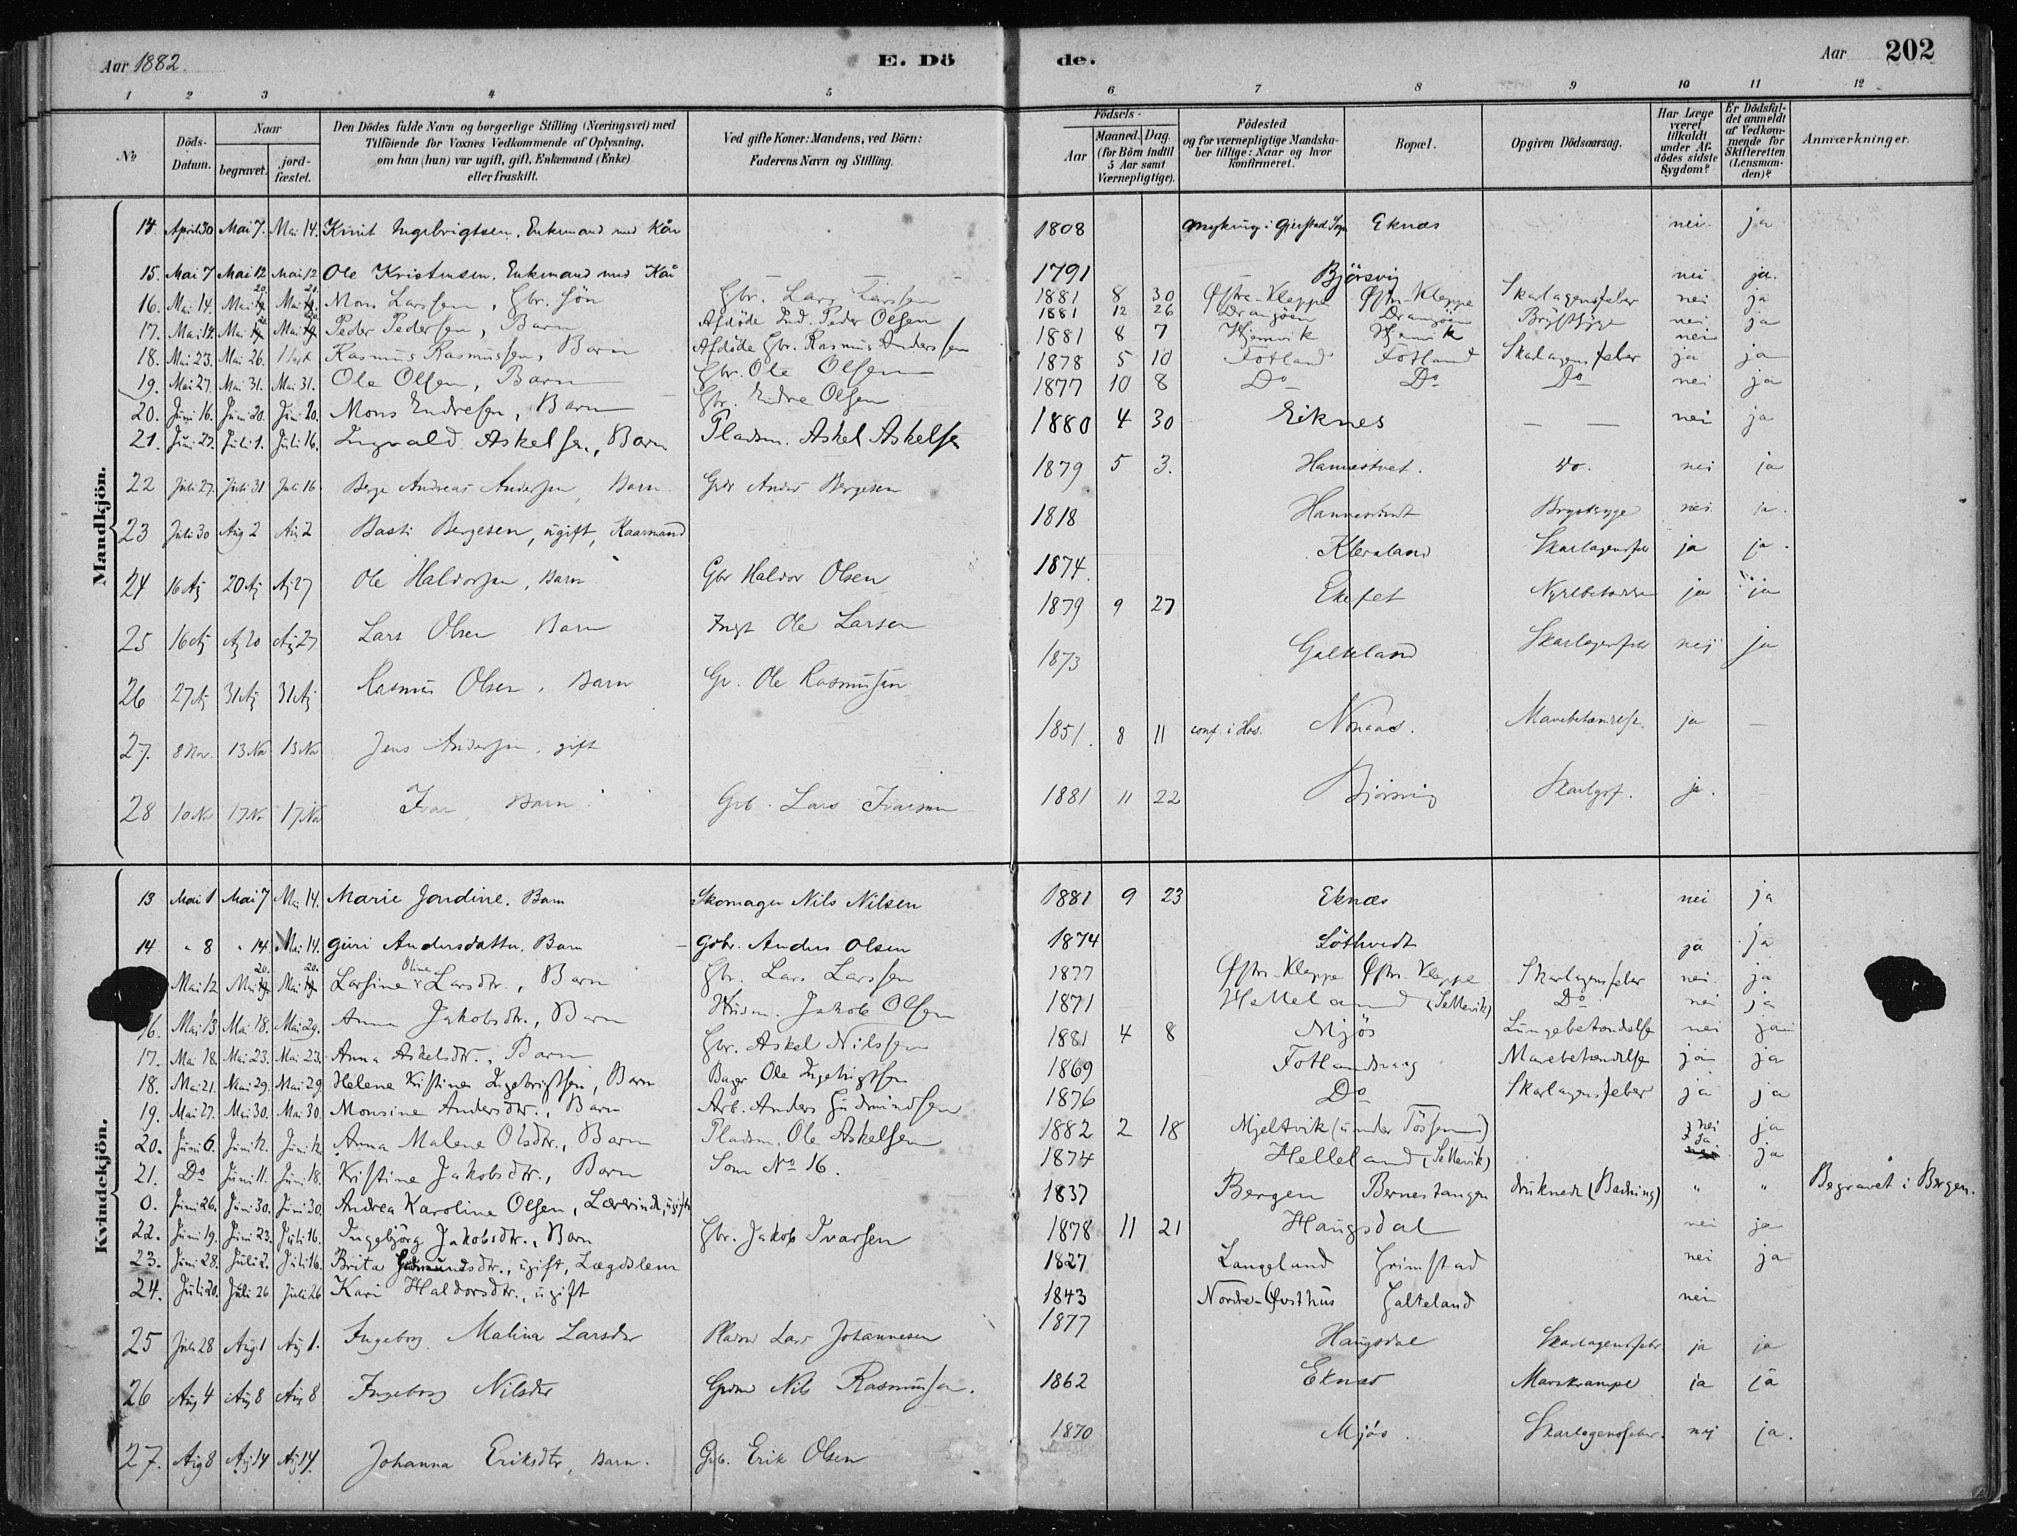 Aar 1882. E. Dö de. Aar 202
1 2 3 4 5 6 7 8 9 10 11 12
No
Döds-Datum.
Naar
begravet. jord-fæstet.
Den Dödes fulde Navn og borgerlige Stilling (Næringsvei) med Tilføiende for Voxnes Vedkommende af Oplysning, om han (hun) var ugift, gift, Enkemand (Enke) eller fraskilt.
Ved gifte Koner: Mandens, ved Börn: Faderens Navn og Stilling.
Födsels-
Aar Maaned. Dag. (for Börn indtil 5 Aar samt Værnepligtige).
Födested og for værnepligtige Mandskaber tillige: Naar og hvor konfirmeret.
Bopæl.
Opgiven Dödsaarsag.
Har Læge været tilkaldt under Afdödes sidste Sygdom?
Er Dödsfaldet anmeldt af Vedkommende for Skifteretten (Lensmanden)?
Anmærkninger.
Mandkjön.
14. April 30 Mai 7. Mai 14. Knut Ingebrigtsen. Enkemand med Kår 1808 Myking i Gjerstad Sogn Eknæs nei. ja
15. Mai 7 Mai 12 Mai 12 Ole Kristensen. Enkemand med Kår 1791 Bjørsvig nei ja.
16. Mai 14. Mai 20. Mai 20. Mons Larssen, Gbr. Søn Gbr. Lars Larssen 1881 8 30 Øftre-Kleppe Øftre-Kleppe Skarlagensfeber nei ja
17. Mai 14. Mai 20 Mai 20. Peder Pedersen, Barn Afdøde Ind. Peder Olsen 1881 12 26 Drangøen Drangøen Brystsyge nei ja
18. Mai 23. Mai 26. Rasmus Rasmussen, Barn Afdøde Gbr. Rasmus Anderssen 1881 8 7 Hjemvik Hjemvik nei
19. Mai 27. Mai 31. Mai 31. Ole Olsen, Barn Gbr. Ole Olsen 1878 5 10 Fotland Fotland Skarlagensfeber ja ja
20. Juni 16. Juni 20. Juni 20. Mons Endresen, Barn Gbr. Endre Olsen 1877 10 8 Do Do Do nei ja
21. Juni 27. Juli 1. Juli 16. Ingvald Askelsen, Barn Pladsm. Askel Askelsen 1880 4 30 Eiknes — — nei ja
22 Juli 27. Juli 31 Juli 16 Berge Andreas Andersen, Barn Gbr Anders Bergesen 1879 5 3. Hannestvet. do. nei ja
23 Juli 30 Aug 2 Aug 2 Basti Bergesen, ugift, Kaarmand 1818 Brystsyge nei ja.
24 16 Ag 20 Ag Ag 27 Ole Haldorsen, Barn Gbr Haldor Olsen 1874. Skarlagensfeb ja ja.
25 16 Ag Ag 20 Ag 27 Lars Olsen Barn Ole Larsen 1879 9 27 ja ja
26 27 Ag 31 Ag 31 Ag Rasmus Olsen, Barn Gr. Ole Rasmussen 1873 Galteland Skarlagensfeb nei ja
27. 8 Nov. 13 Nov 13 Nov Jens Andersen, gift 1851. 8 11 conf. i Hos. Mavebetændelse ja —
28 10 Nov 17 Nov 17 Nov Ivar, Barn Grb. Lars Ivarsen 1881 11 22 Bjørsvig Skarlgsf. ja.
Kvindekjön.
13 Mai 1 Mai 7 Mai 14. Marie Jondine. Barn Skomager Nils Nilsen 1881 9 23 Eknæs nei ja
14 " 8 " 14 Mai 14. Guri Andersdatter. Barn Gbr. Anders Olsen 1874 Løthvedt ja ja
Mai 12 Mai 20. Mai 20. Larsine Oline Larsdtr., Barn Gbr. Lars Larssen 1877 Øftre-Kleppe Øftre-Kleppe Skarlagensfeber nei. ja
16. Mai 13 Mai 18. Mai 29. Anna Jakobsdtr., Barn Husm. Jakob Olsen 1871 Helleland (Sættevik) Do nei ja
17. Mai 18. Mai 23. Mai 23. Anna Askelsdtr., Barn Gbr. Askel Nilssen 1881 4 8 Mjøs Lungebetændelse nei ja
18. Mai 21. Mai 29. Mai 29 Helene Kristine Ingebrigtsen, Barn Bager Ole Ingebrigtsen 1869 Fotlandsvaag Mavebetændelse ja ja
19. Mai 27. Mai 30. Mai 30. Monsine Andersdtr., Barn Arb. Anders Gudmundsen 1876 Do Skarlagensfeber ja ja
20. Juni 6. Juni 12. Juni 12. Anna Malene Olsdtr., Barn Pladsm. Ole Askelsen 1882 2 18 Mjeltvik (under Tøssen) nei ja
21. Do Juni 11. Juni 18. Kristine Jakobsdtr., Barn Som No 16. 1874 Helleland (Sættevik) ja ja
0. Juni 26. Juni 30. Juni 30. Andrea Karoline Olsen, Lærerinde, ugift 1837 Bergen Bernestangen druknede (Badning) " " Begravet i Bergen.
22. Juni 19. Juni 23. Juli 16. Ingebjørg Jakobsdtr., Barn Gbr. Jakob Ivarsen 1878 11 21 Haugsdal nei ja
23. Juni 28. Juli 2. Juli 16. Brita Gudmundsdtr., ugift, Lægdslem 1827 Langeland Grimstad nei ja
24. Juli 20. Juli 26 Juli 26 Kari Haldorsdtr., ugift 1843 Nordre-Øvsthus Galteland nei
25 Juli 28 Aug 1 Aug 1. Ingeborg Malina Larsdtr Pladsm Lars Johannesen 1877 Haugsdal Skarlagensfeber ja ja
26 Aug 4 Aug 8 Aug 8 Ingeborg Nilsdtr Nils Rasmussen. 1862 Eknæs Mavekrampe ja ja
27. Aug 8 Aug 14 Aug 14. Johanna Eriksdtr, Barn. Grb. Erik Olsen 1870 Mjøs. Skarlagensfeber. nei ja.